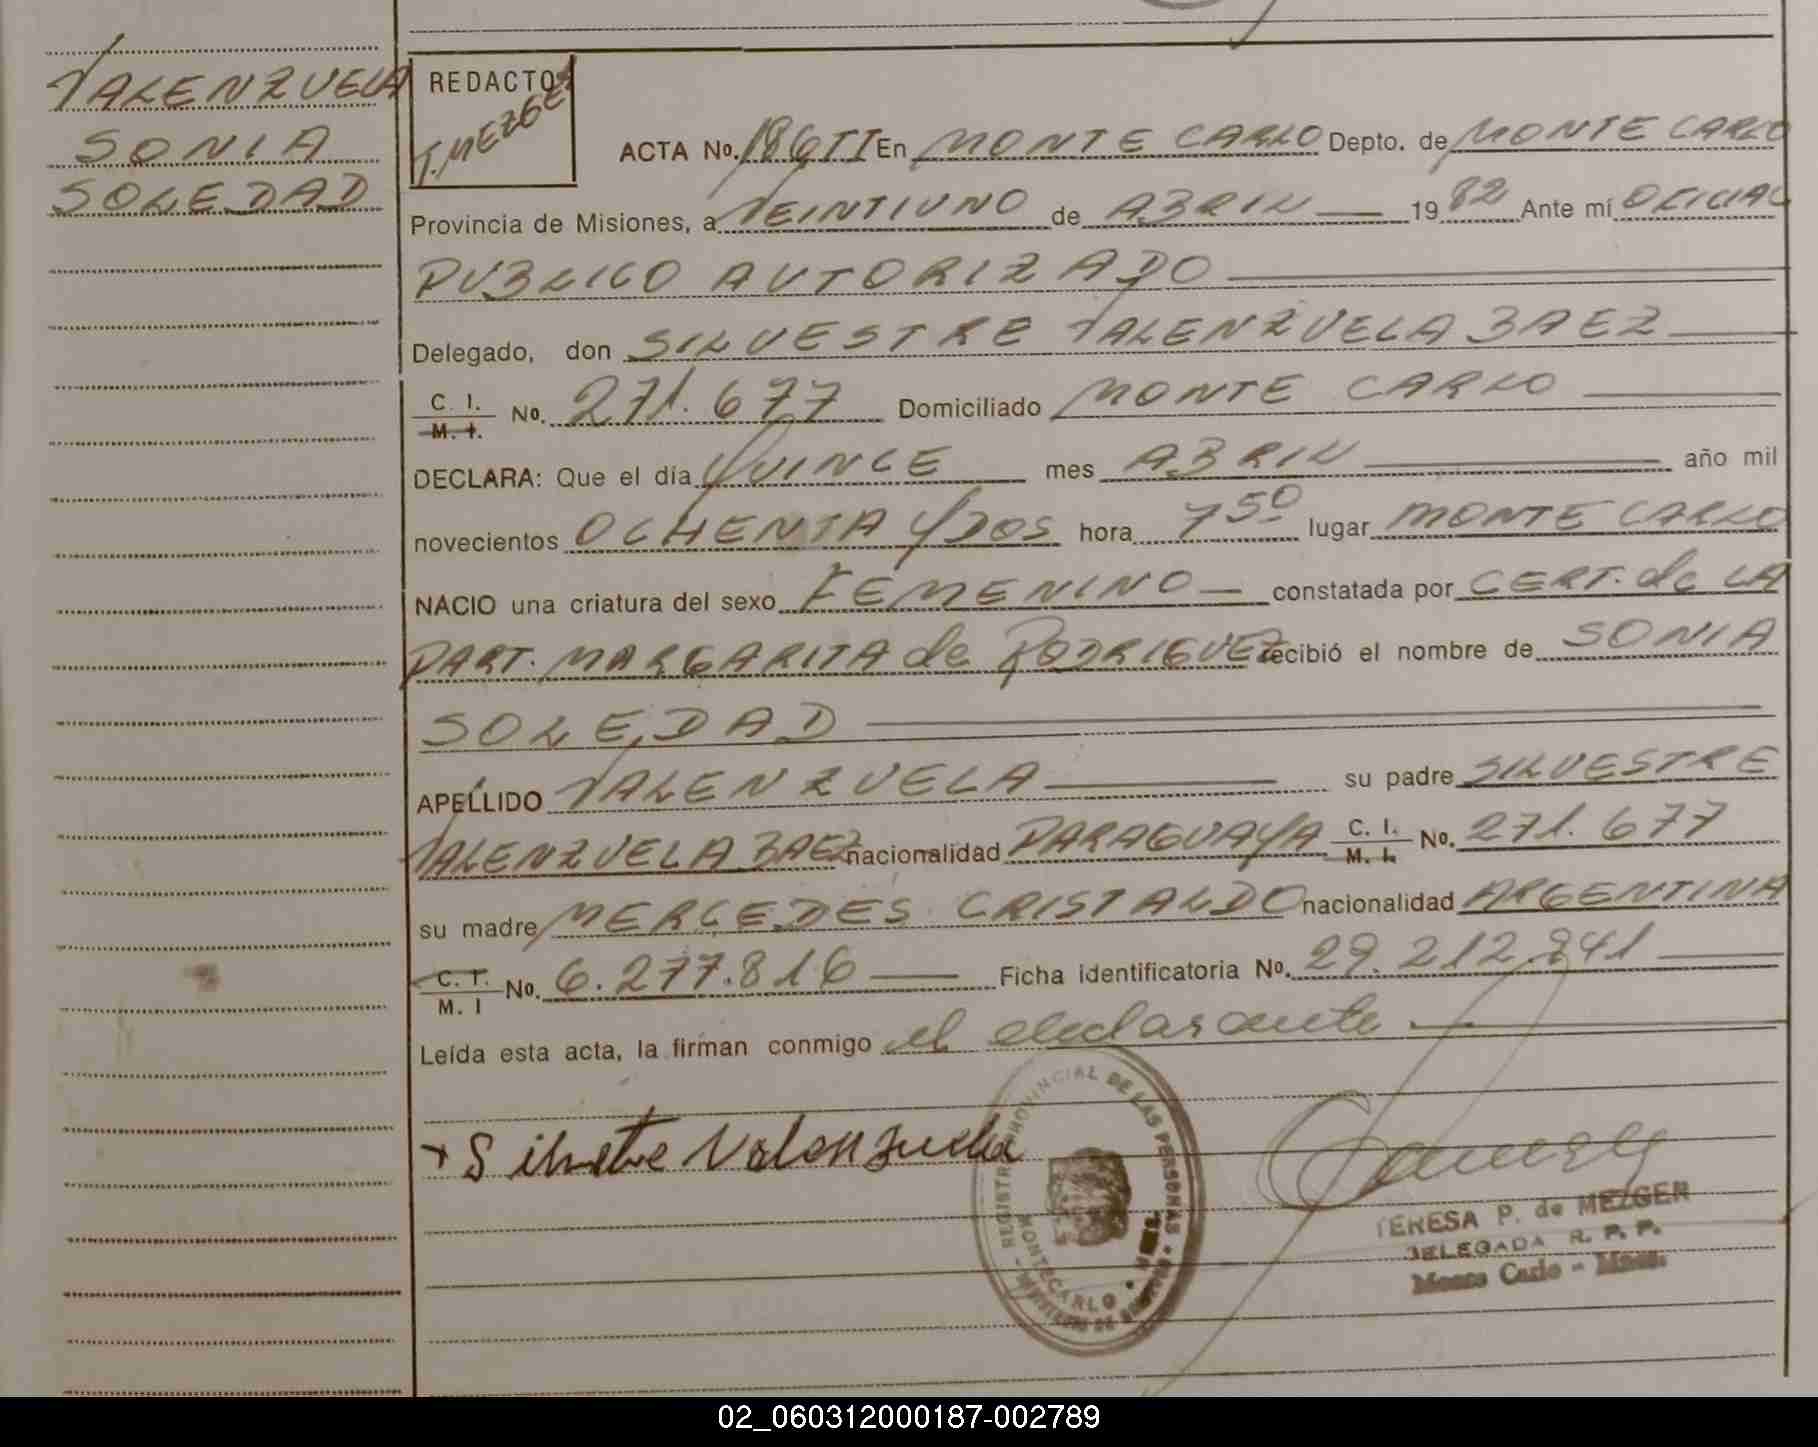 VALENZUELA
SONIA
SOLEDAD
REDACTOR
T. MEZGER
ACTA No. 186 TI En MONTE CARLO Depto. de MONTE CARLO
Provincia de Misiones, a VEINTIUNO de ABRIL 1982 Ante mí OFICIAL
PUBLICO AUTORIZADO
Delegado, don SILVESTRE VALENZUELA BAEZ
C. I. M. I. No. 271.677 Domiciliado MONTE CARLO
DECLARA: Que el día QUINCE mes ABRIL año mil
novecientos OCHENTA Y DOS hora 7 50 lugar MONTE CARLO
NACIO una criatura del sexo FEMENINO constatada por CERT. de LA
PART. MARGARITA de RODRIGUEZ recibió el nombre de SONIA
SOLEDAD
APELLIDO VALENZUELA su padre SILVESTRE
VALENZUELA BAEZ nacionalidad PARAGUAYA C. I. M. I. No. 271.677
su madre MERCEDES CRISTALDO nacionalidad ARGENTINA
C. I. M. I No. 6.277.816 Ficha identificatoria No. 29.212.841
Leída esta acta, la firman conmigo el declarante
+ Silvestre Valenzuela
REGISTRO PROVINCIAL DE LAS PERSONAS
MONTECARLO
TERESA P. de MEZGER
DELEGADA R. P. P.
Monte Carlo - Mnes.
02_060312000187-002789